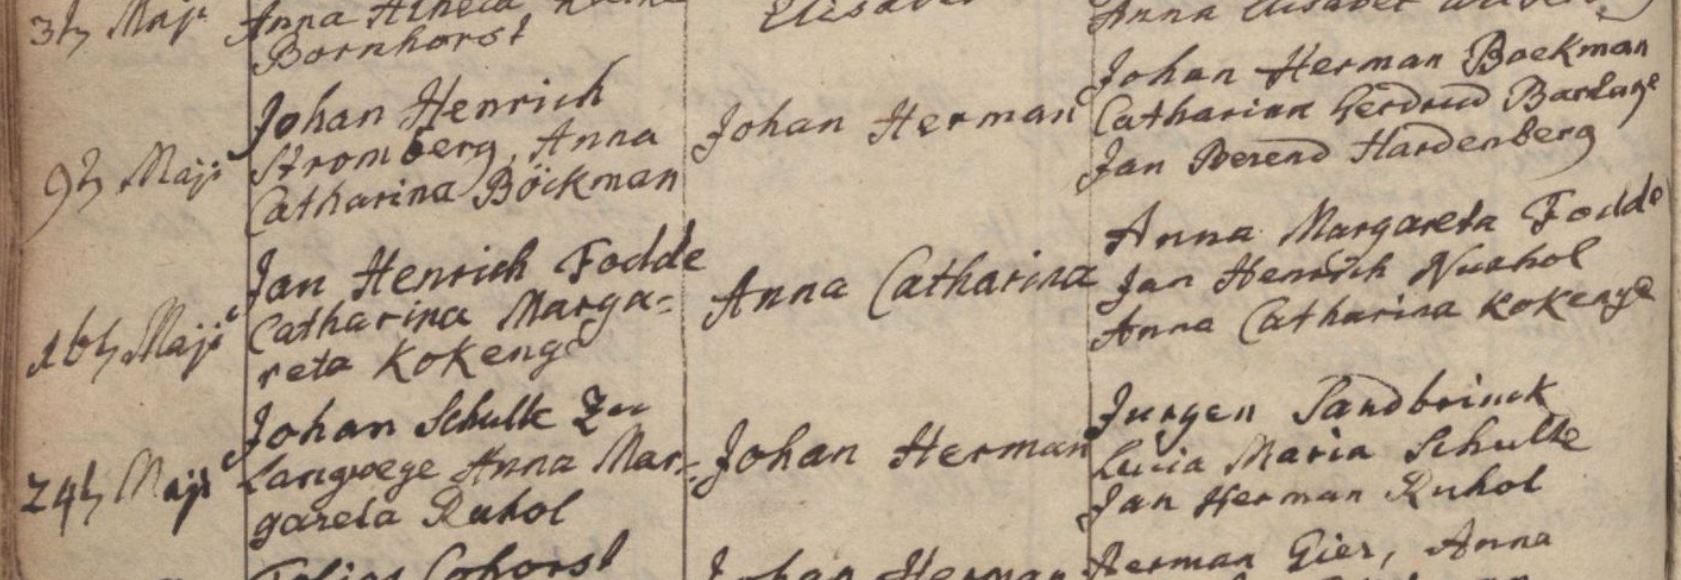 3th Maji
Anna
Bornhorst
Elisabet
Anna Elisabet
9th Maji
Johan Henrich
Stromberg, Anna
Catharina Böckman
Johan Herman
Johan Herman Boekman
Catharina Gerdrud Bardage
Jan Berend Hardenberg
16th Maji
Jan Henrich Fodde
Catharina Marga=
reta Kokenge
Anna Catharina
Anna Margareta Fodde
Jan Henrich Nuxhol
Anna Catharina Kokenge
24th Maji
Johan Schulte Zu
Langwege Anna Mar=
gareta Ruhol
Johan Herman
Jurgen Sandbrinck
Lucia Maria Schulte
Jan Herman Ruhol
Tobias Cohorst
Johan Herman
Herman Gier, Anna